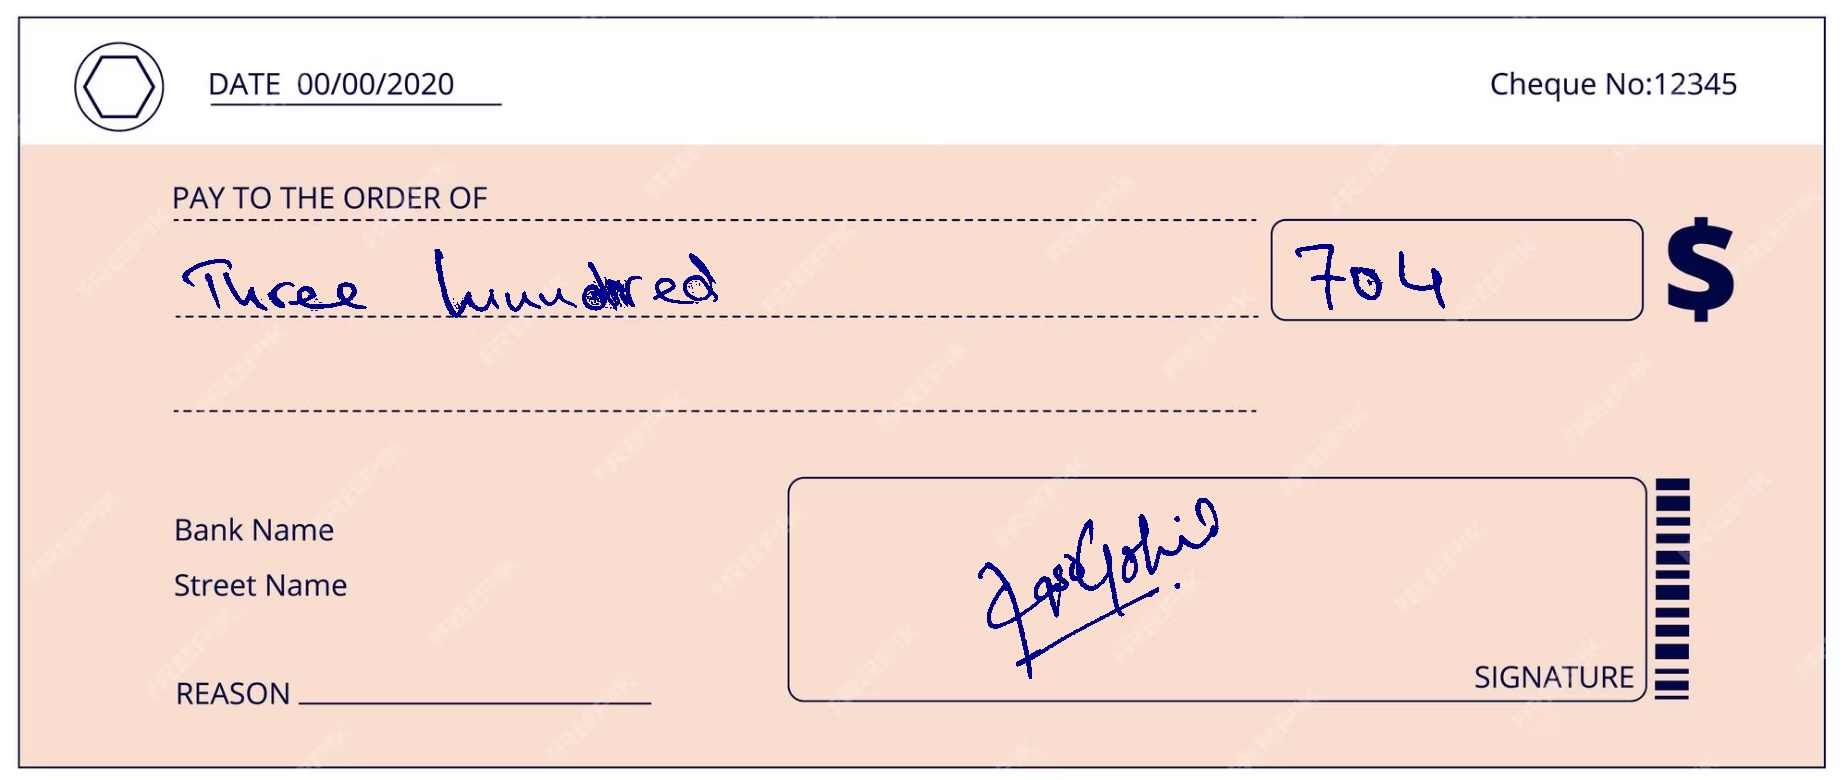 DATE 00/00/2020
Cheque No:12345
PAY TO THE ORDER OF
Three hundred
704
$
Bank Name
Street Name
REASON
SIGNATURE